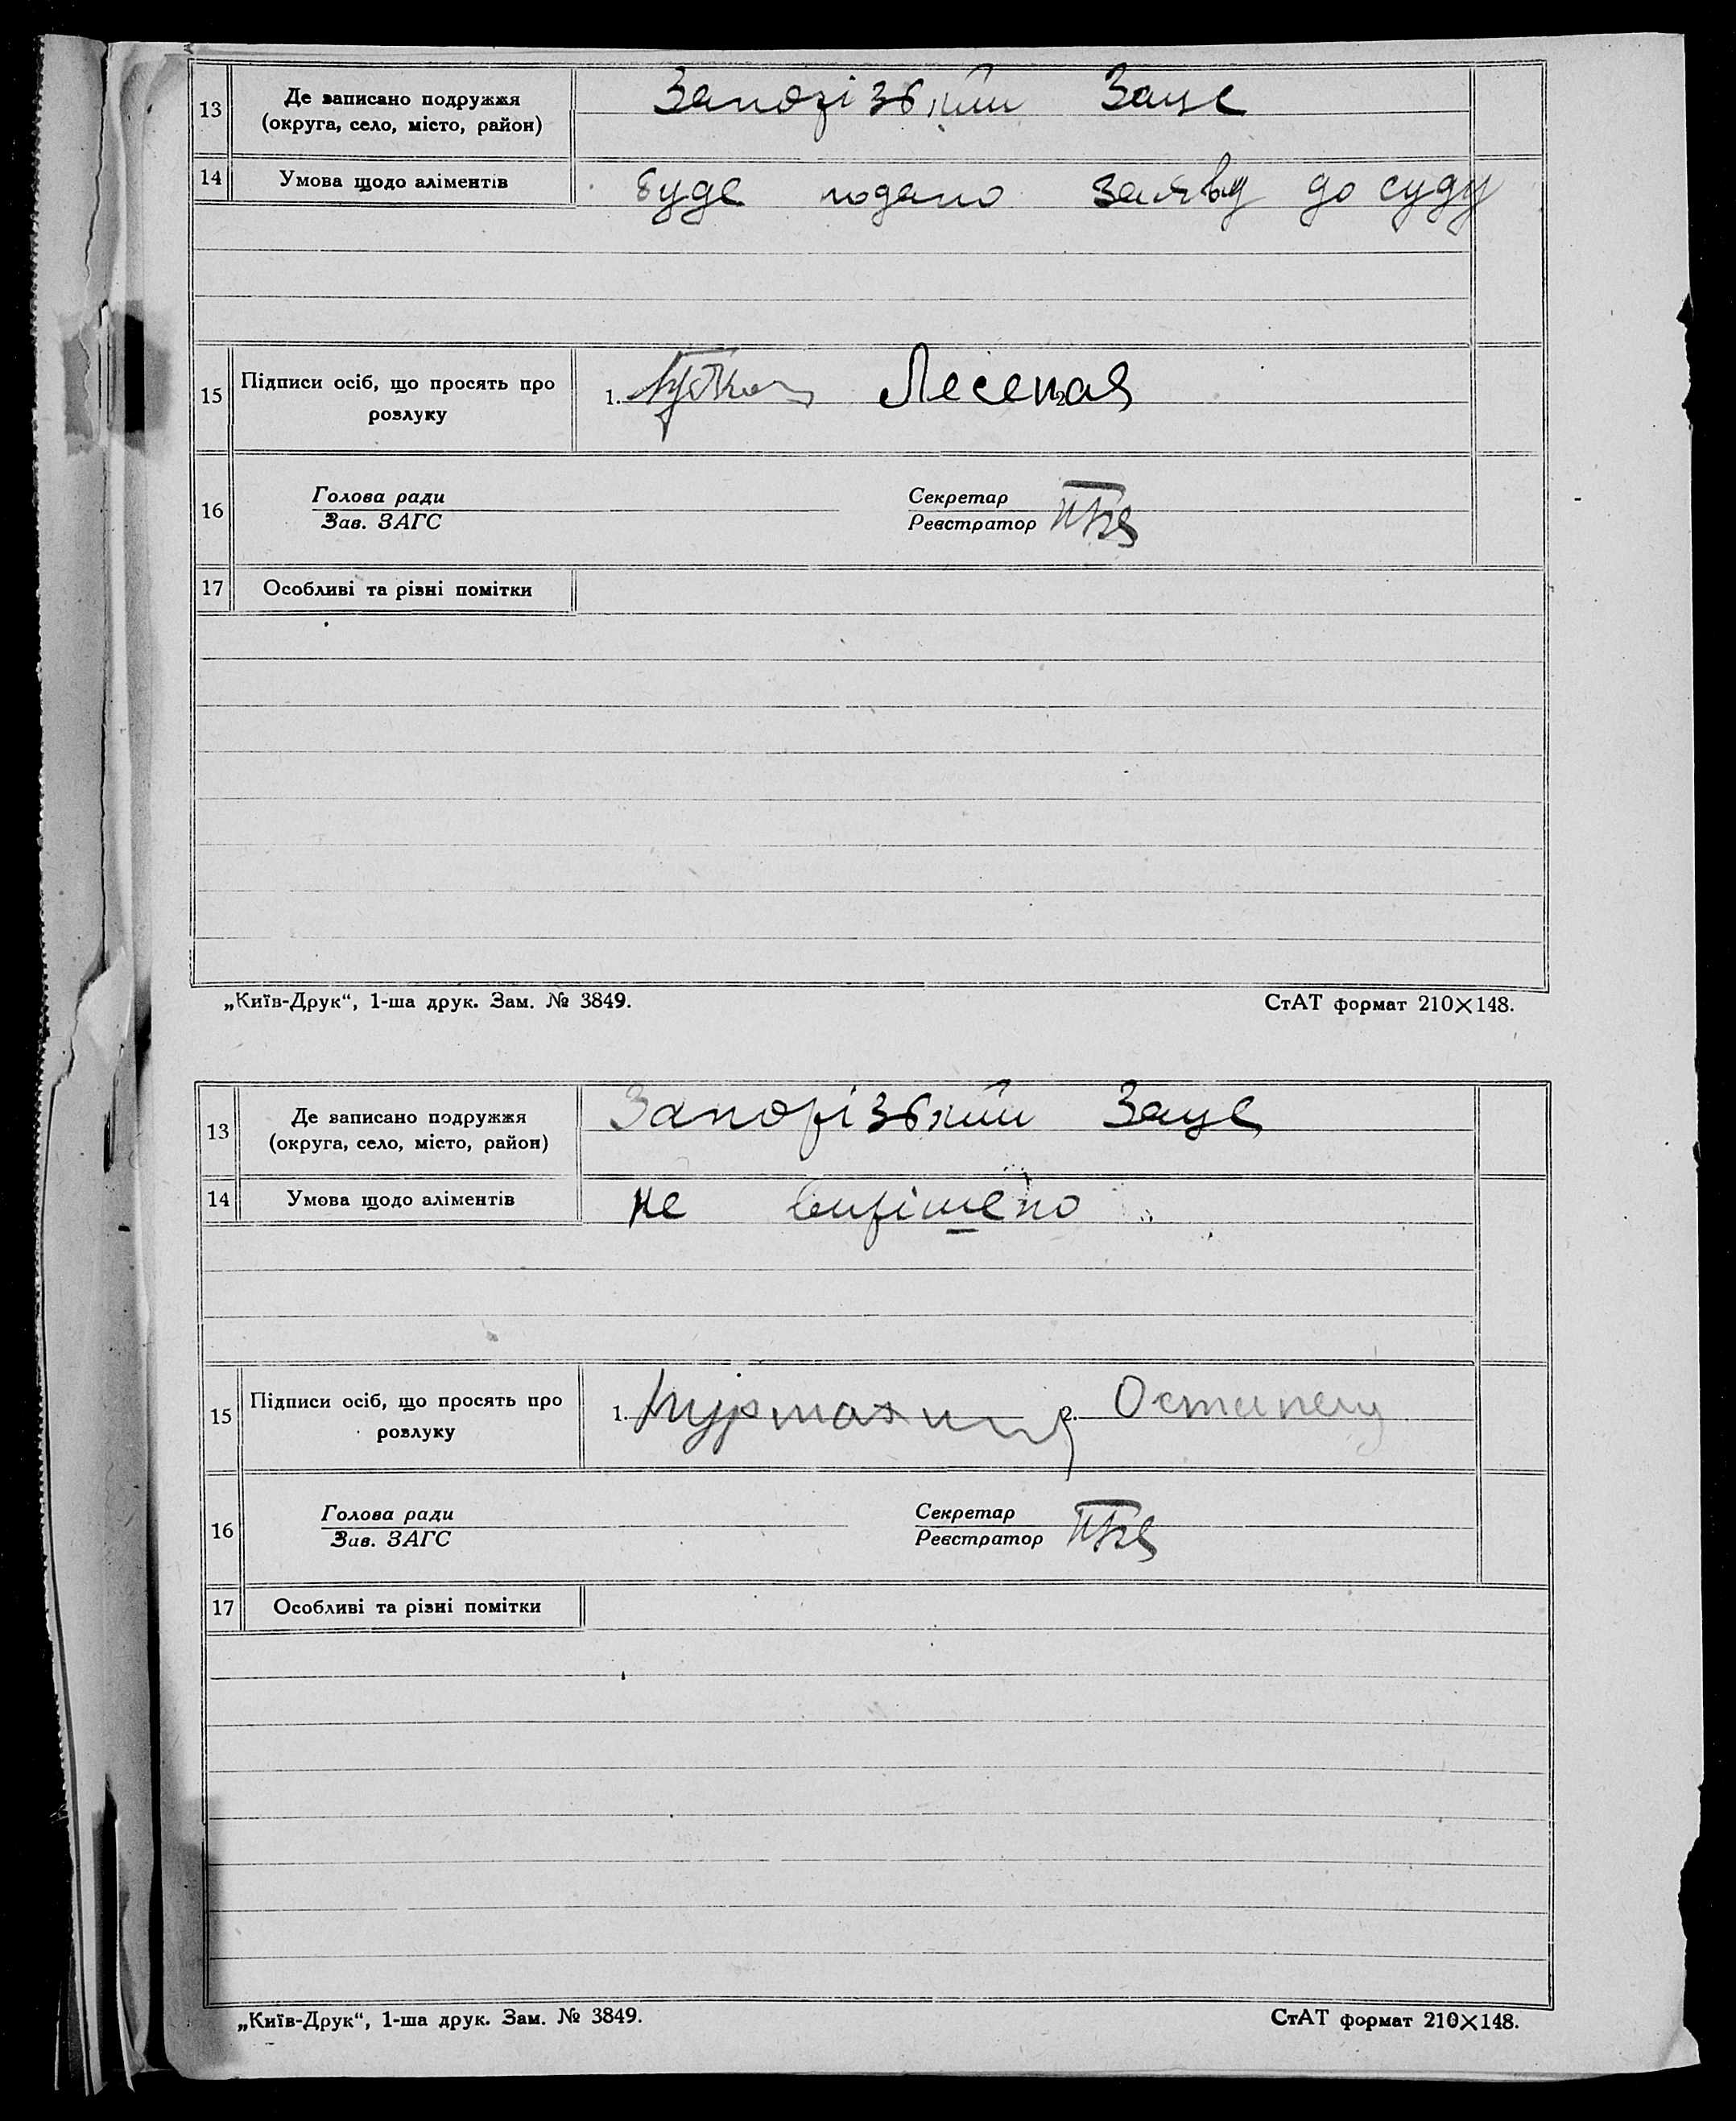 13 Де записано подружжя Запорізький Загс
(округа, село, місто, район)
14 Умова щодо аліментів буде подано заяву до суду
15 Підписи осіб, що просять про 1. Лесецкая
розлуку
Голова ради Секретар
16
Зав. ЗАГС Реєстратор
17 Особливі та різні помітки
„Київ-Друк“, 1-ша друк. Зам. № 3849. СтАТ формат 210×148.
13 Де записано подружжя Запорізький Загс
(округа, село, місто, район)
14 Умова щодо аліментів не вирішено
15 Підписи осіб, що просять про 1. 2. Остапец
розлуку
Голова ради Секретар
16
Зав. ЗАГС Реєстратор
17 Особливі та різні помітки
„Київ-Друк“, 1-ша друк. Зам. № 3849. СтАТ формат 210×148.